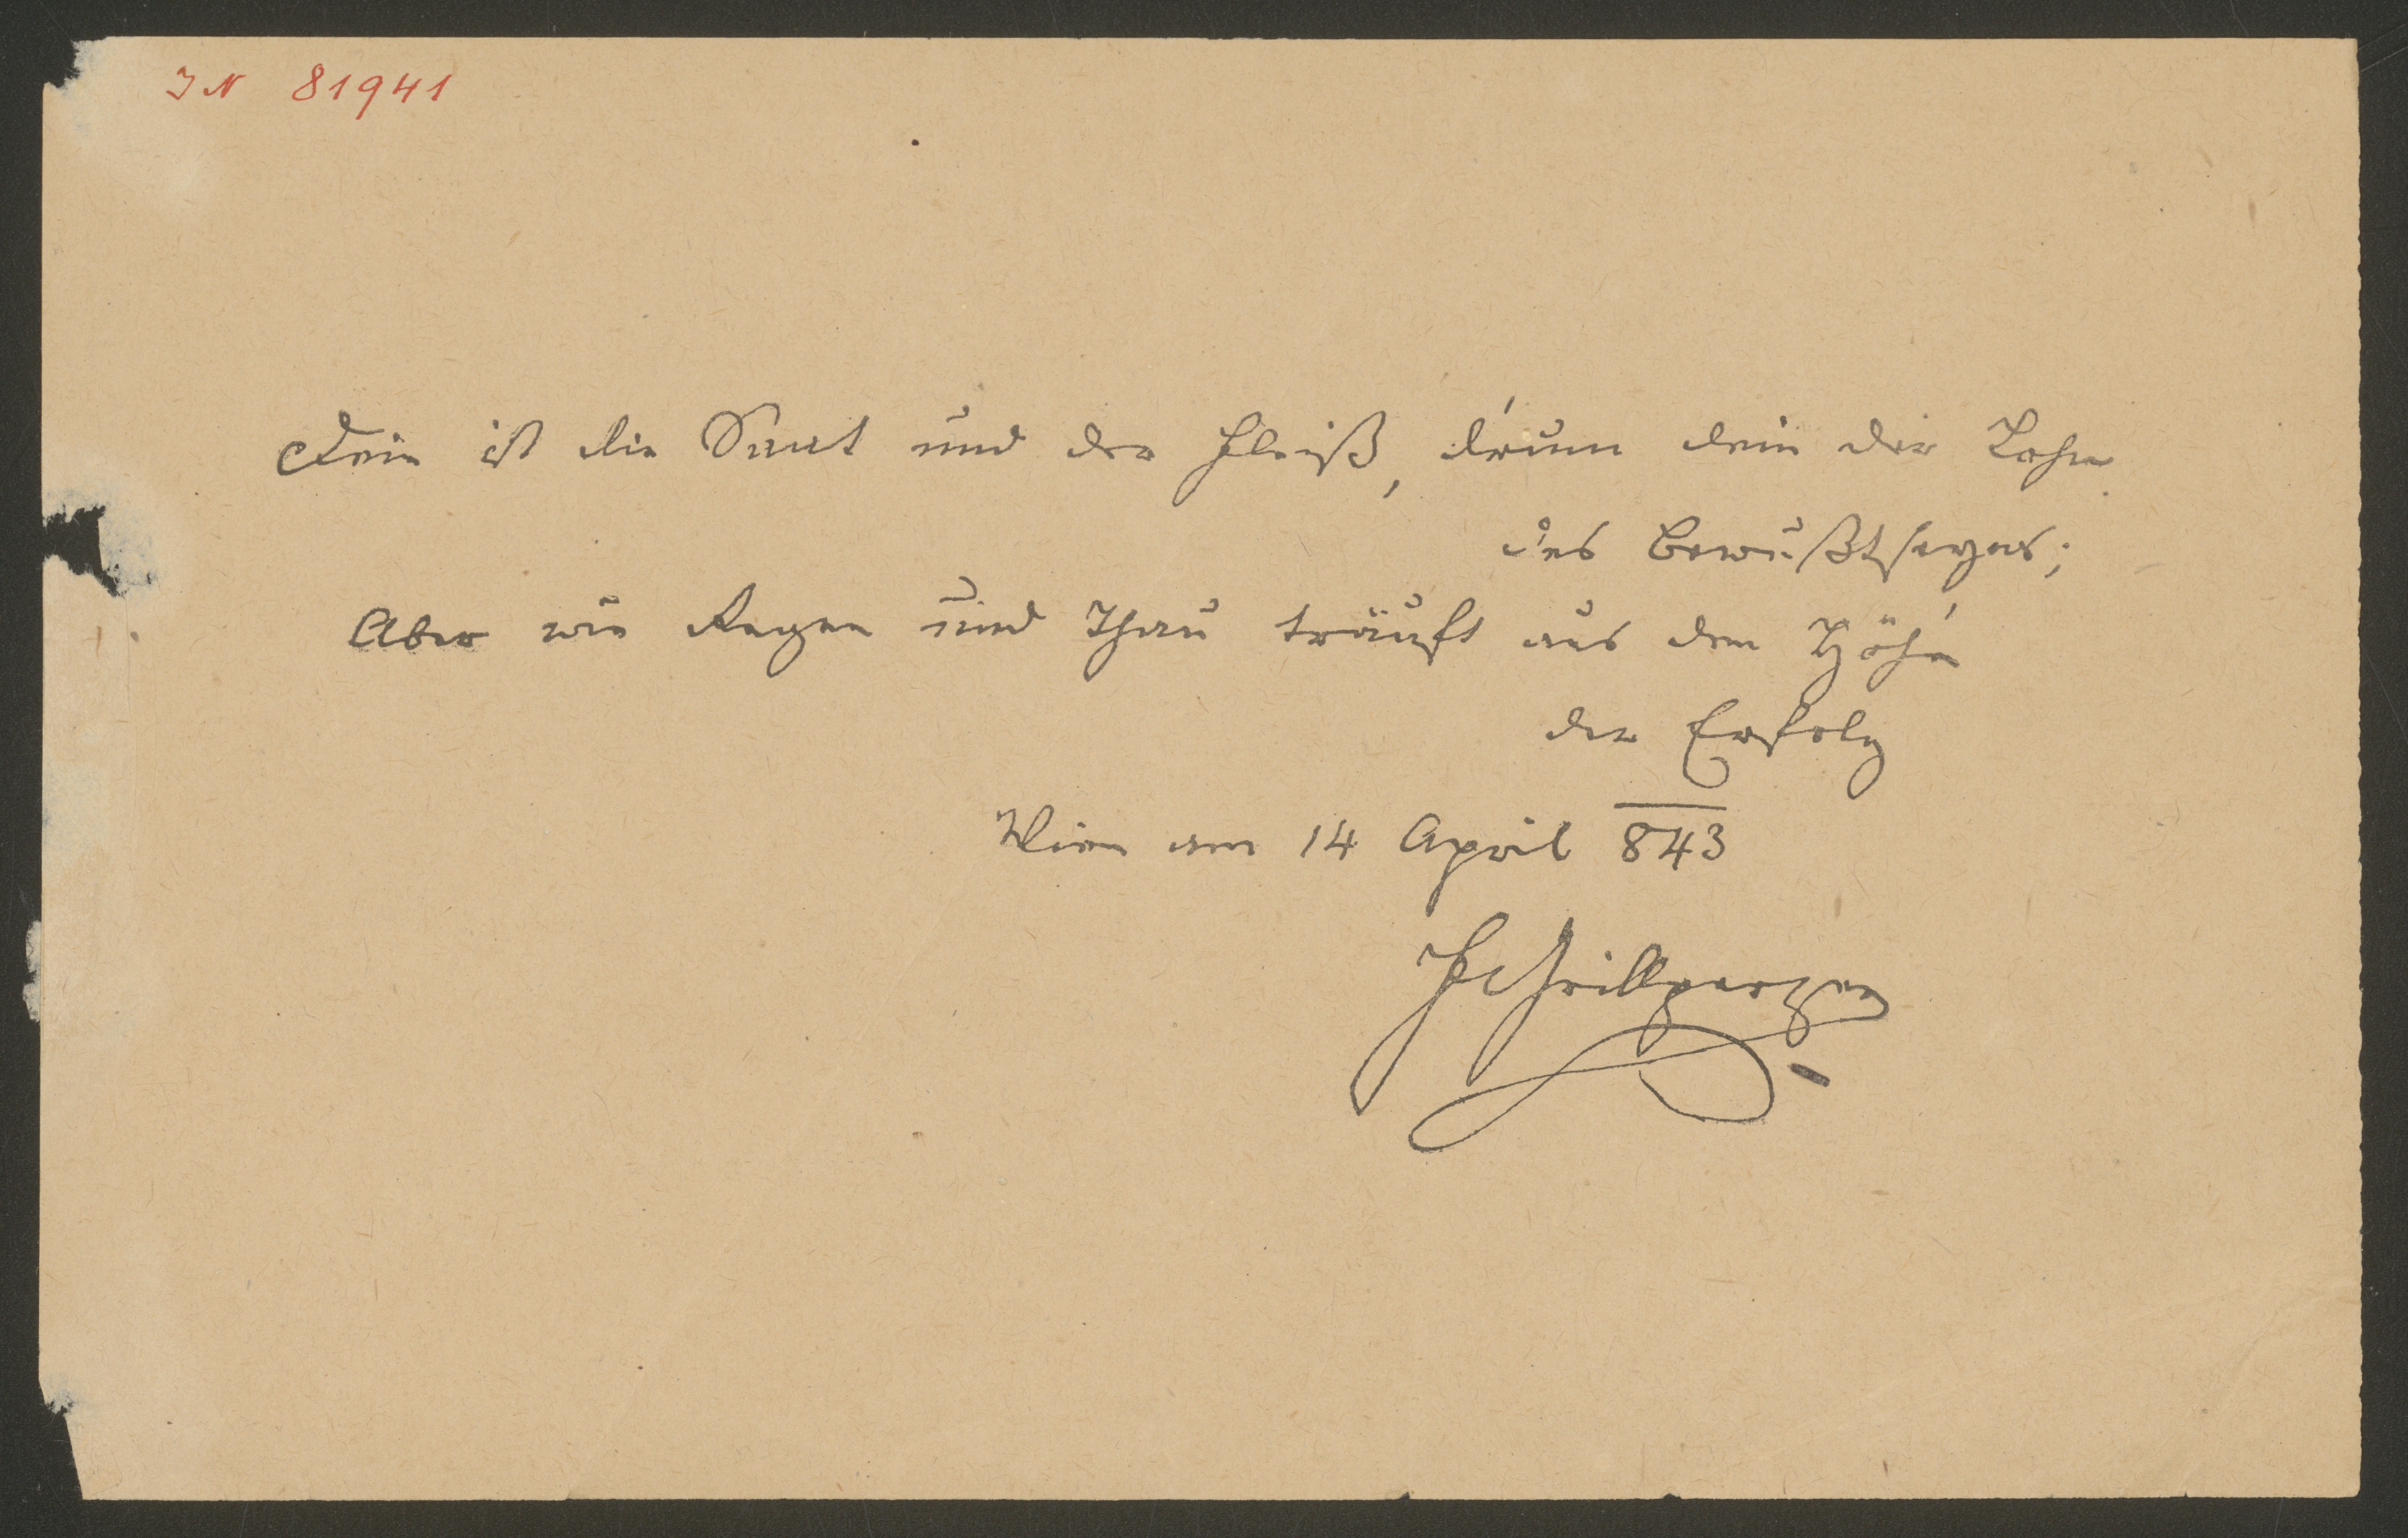 IN 81941
Dein ist die Saat und der Fleiß, d'rum dein der Lohn
des Bewußtseyns;
Aber wie Regen und Thau träuft aus den Höh'n
der Erfolg
Wien am 14 April 843
F Grillparzer